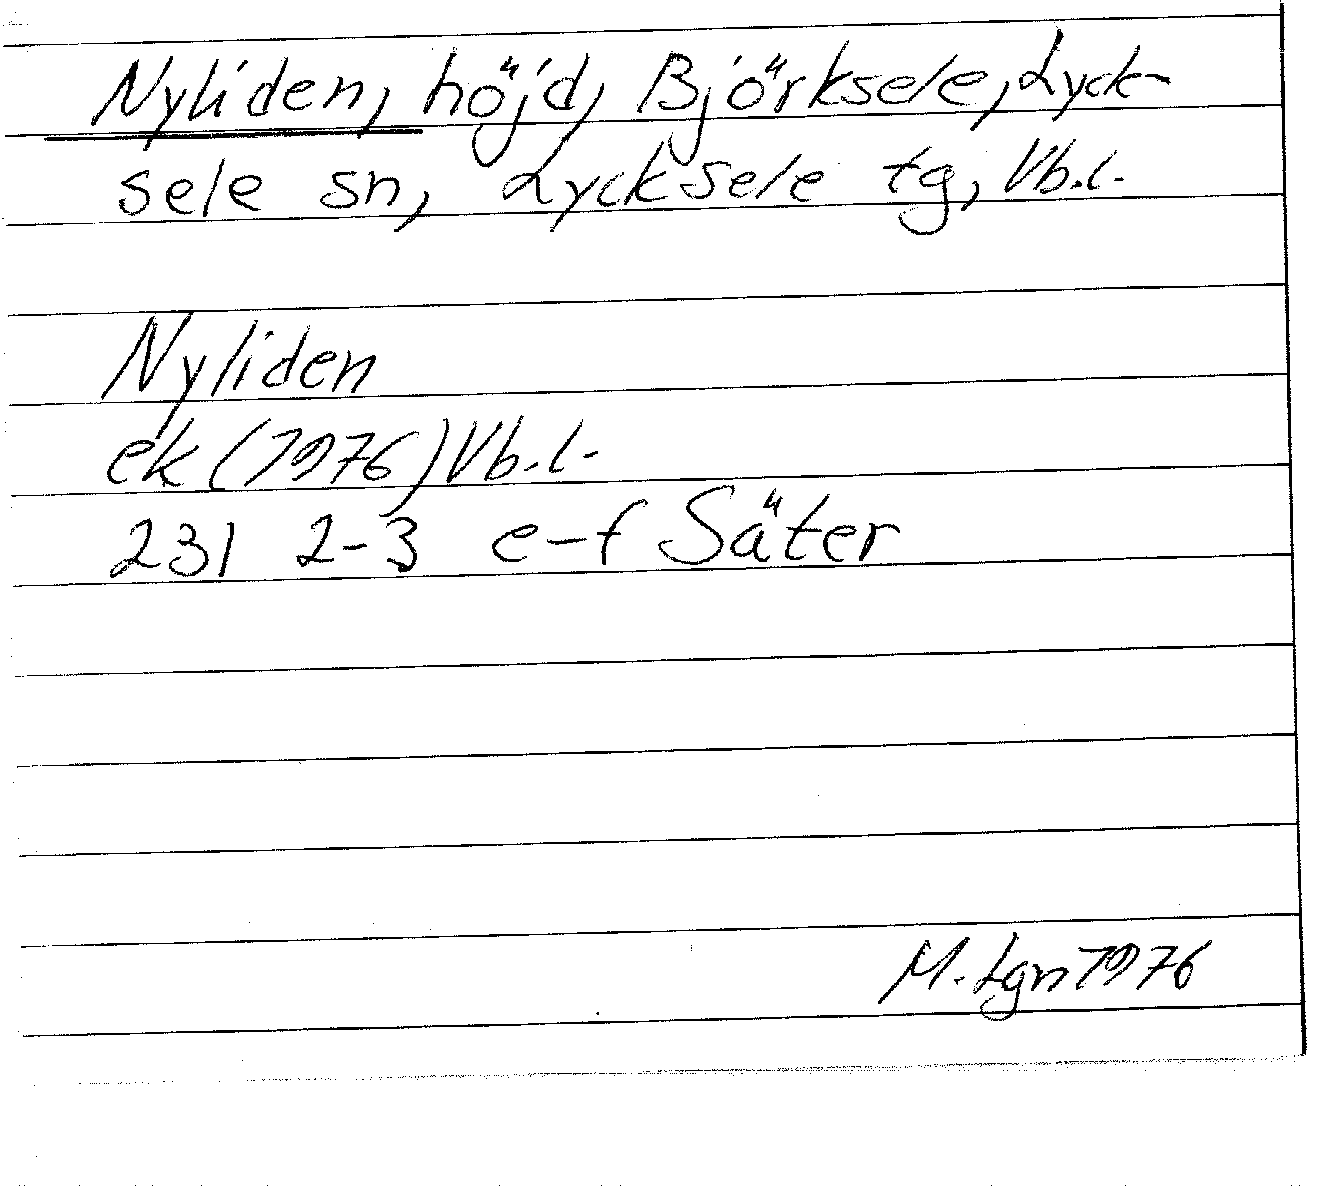 Nyliden, höjd, Björksele, Lyck-
sele sn, Lycksele tg, Vb.l.
Nyliden
ek (1976) Vb.l.
231 2-3 e-f Säter
M. Lgn 1976